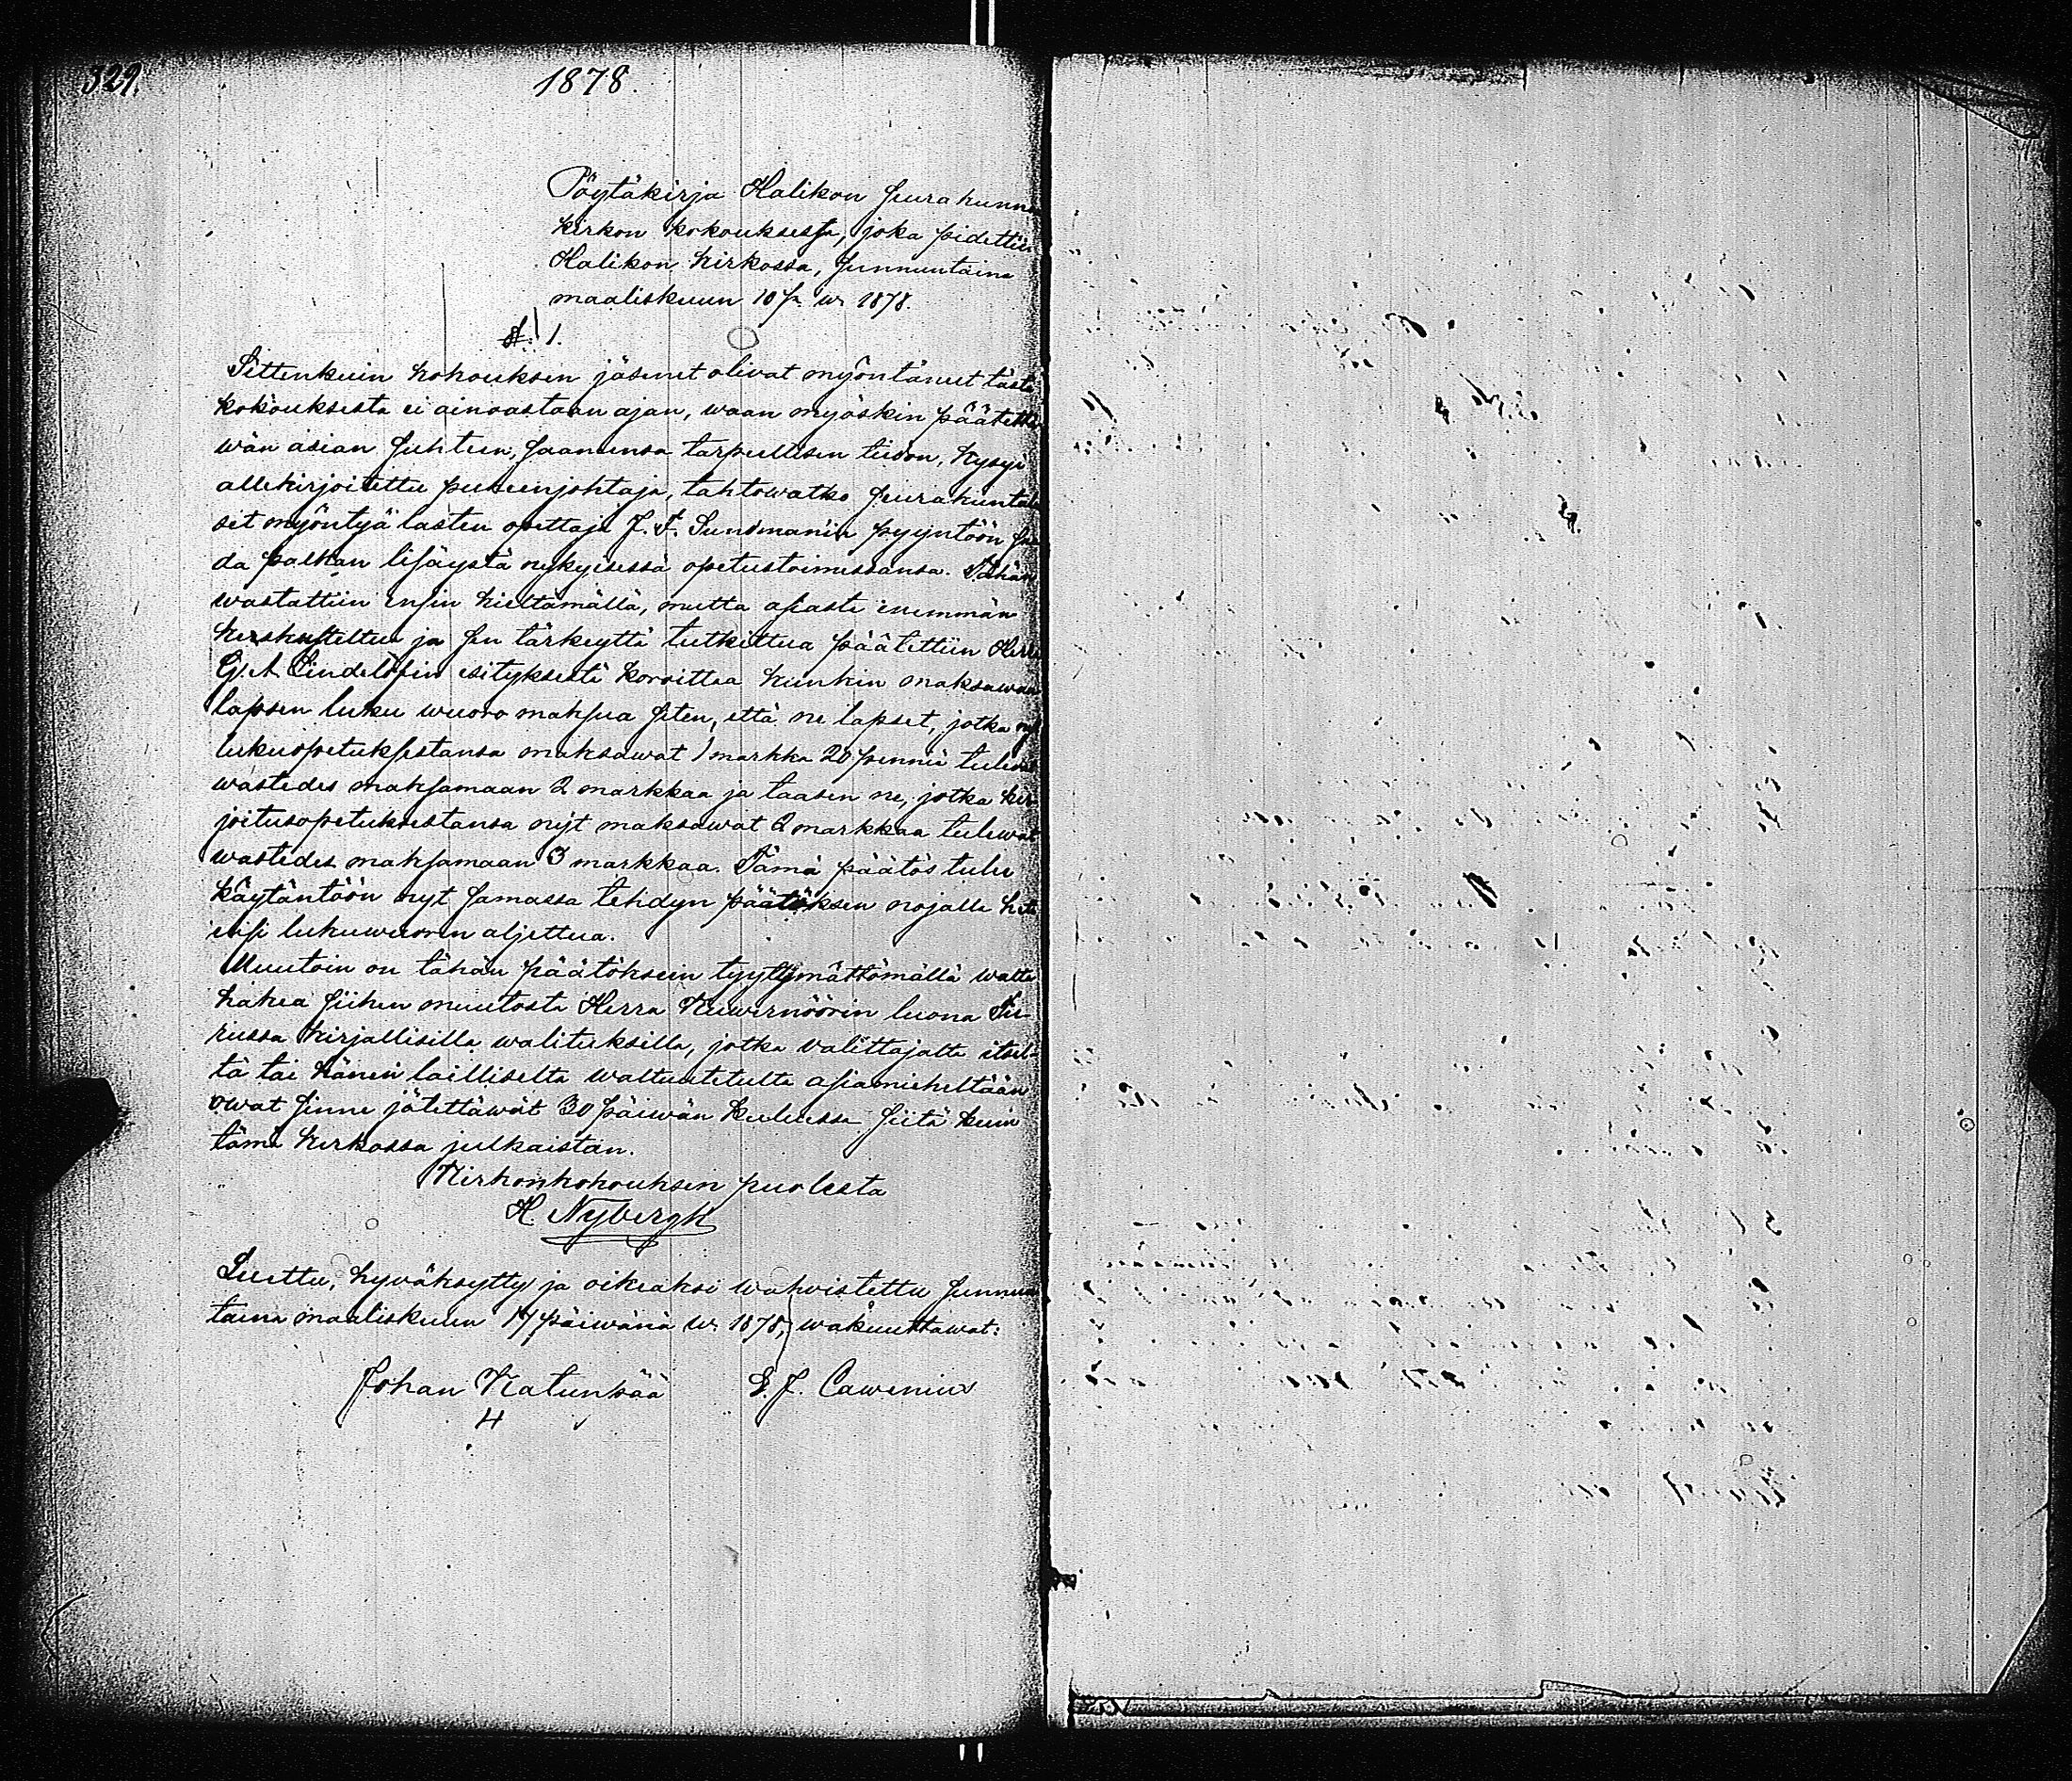 329.
1878.
Pöytäkirja Halikon seurakunna
kirkon kokouksessa, joka pidettiin
Halikon kirkossa, sunnuntaina
maaliskuun 10 p. w. 1878.
§. 1.
Sittenkuin kokouksen jäsenet olivat myöntäneet tästä
kokouksesta ei ainoastaan ajan, waan myöskin päätettä
wän asian suhteen, saaneensa tarpeellisen tiedon, kysyi
allekirjoitettu puheenjohtaja, tahtowatko seurakuntalai
set myöntyä lasten opettaja J. F. Sundman'in pyyntöön saa
da palkan lisäystä nykyisessä opetustoimessansa. Tähän
wastattiin ensin kieltämällä, mutta asiasta enemmän
keskusteltua ja sen tärkeyttä tutkittua päätettiin Herra
G. A. Lindelöfin esityksestä koroittaa kunkin maksawan
lapsen luku wuoro maksua siten, että ne lapset, jotka nyt
lukuopetuksestansa maksawat 1 markka 20 penniä tulewat
wastedes maksamaan 2 markkaa ja taasen ne, jotka kir-
joitusopetuksestansa nyt maksawat 2 markkaa tulewat
wastedes maksamaan 3 markkaa. Tämä päätös tulee
käytäntöön nyt samassa tehdyn päätöksen nojalla heti
ensi lukuwuoron aljettua.
Muutoin on tähän päätökseen tyytymättömällä walta
hakea siihen muutosta Herra Kuwernöörin luona Tu-
russa kirjallisilla walituksilla, jotka valittajalta itsel-
tä tai hänen lailliselta waltuutetulta asiamieheltään
owat sinne jätettäwät 30 päiwän kuluessa siitä kuin
tämä kirkossa julkaistan.
Kirkonkokouksen puolesta
H. Nybergh
Luettu, hyväksytty ja oikeaksi wahvistettu sunnun
taina maaliskuun 17 päiwänä w. 1878, wakuuttawat:
Johan Katunpää E. J. Cawenius